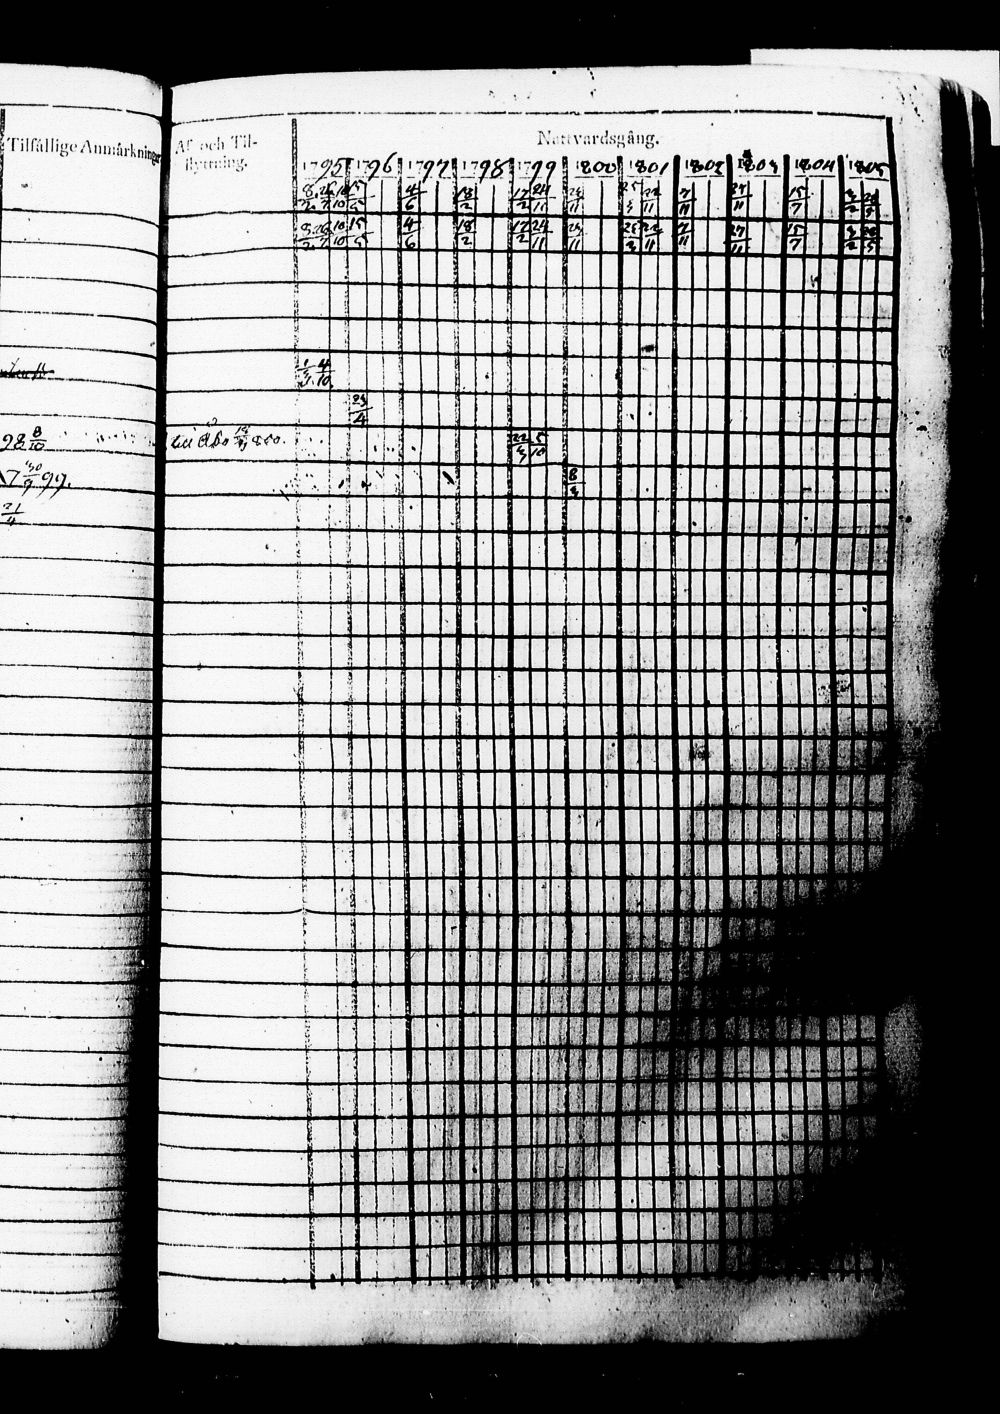 Tilfällige Anmärkningar
Af- och Til-
flyttning.
Nattvardsgång.
1795 1796 1797 1798 1799 1800 1801 1802 1803 1804 1805
8/2 26/7 10/10 15/5 4/6 18/2 17/2 24/11 23/11 25/3 22/11 7/11 27/11 15/7 3/2 20/5
8/2 26/7 10/10 15/5 4/6 18/2 17/2 24/11 23/11 25/3 22/11 7/11 27/11 15/7 3/2 20/5
1/3 4/10
23/4
98 8/10
til Åbo
22/3 5/10
17 30/9 99.
8/3
21/4